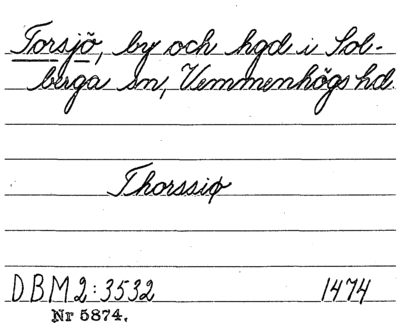 Torsjö, by och hgd i Sol-
berga sn, Vemmenhögs hd.
Thorssiø
DBM2:3532 1474
Nr 5874.